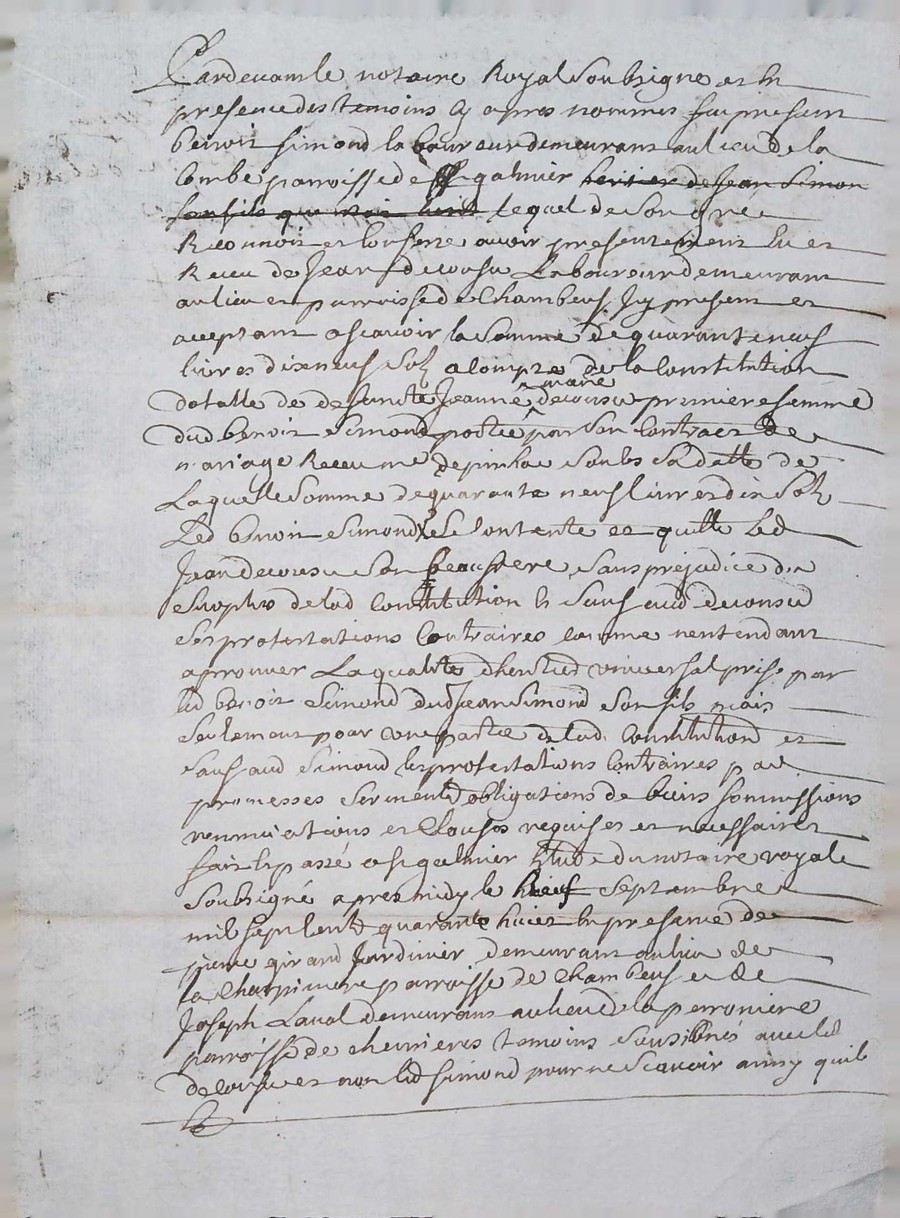 Pardevant le notaire Royal Soubsigné et en
presence des temoins cy apres nommes fut present
benoit Simond laboureur demeurant au lieu de la
Combe parroisse de St galmier heritier de Jean Simon
son fils lequel de son gré
Reconnoit et Confesse avoir presentement eu et
Receu de Jean decousu Laboureur demeurant
au lieu et parroisse de Chambeuf Jcy present et
aceptant ascavoir la Somme de quarante neuf
livres dix neuf Solz acompte de la Constitution
dotalle de defuncte Jeanne marie decousu premiere femme
dud benoit Simond portée par Son Contract de
mariage Receu me depinhac Soubs Sa datte de
Laquelle Somme de quarante neuf livres dix Solz
Led benoit Simond Se Contente et quitte led
Jean decousu Son beaufrere Sans prejudice du
Surplus de lad Constitution et Sauf aud decousu
Ses protestations Contraires comme nentendant
aprouver La qualité dheritier universel prise par
led benoit Simond dud Jean Simond Son fils mais
Seulement pour une partie de lad Constitution et
Sauf aud Simond Ses protestations Contraires par
promesses Serments obligations de biens Sommissions
renonciations et Clauses requises et necessaires
fait et passé a St galmier Etude du notaire royale
Soubsigné apres midy le neuf Septembre
mil Sept Cent quarante huict En presance de
pierre girard Jardinier demeurant au lieu de
la Charpiniere parroisse de Chambeuf et de
Joseph Laval demeurant au lieu de la perroniere
parroisse de chevrieres temoins Sousignés avec led
decousu et non led Simond pour ne Scavoir ainsy quil